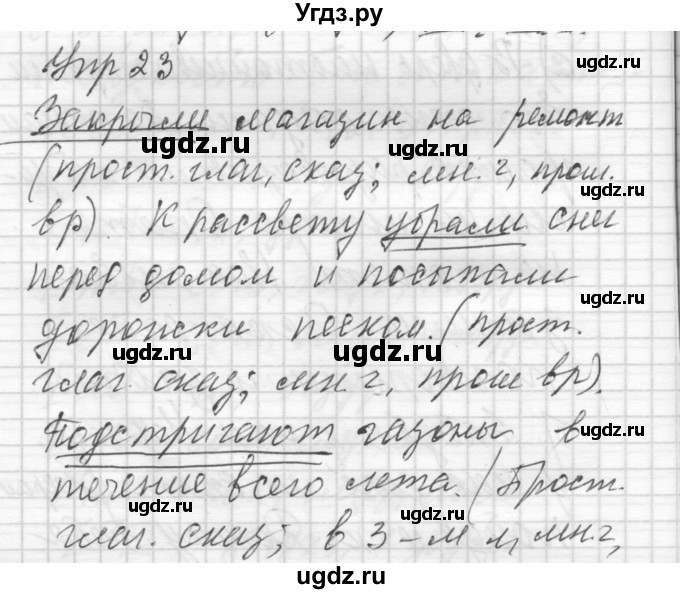 Угдз.ру
Упр 23
Закрыли магазин на ремонт
(прост. глаг, сказ; мн. г, прош.
вр). К рассвету убрали снег
перед домом и посыпали
дорожки песком. (прост.
глаг. сказ; мн. г, прош вр).
Подстригают газоны в
течение всего лета. (Прост.
глаг. сказ; в 3-м л, мн. г,
ugdz.ru
ugdz.ru
ugdz.ru
ugdz.ru
ugdz.ru
ugdz.ru
ugdz.ru
ugdz.ru
ugdz.ru
ugdz.ru
ugdz.ru
ugdz.ru
ugdz.ru